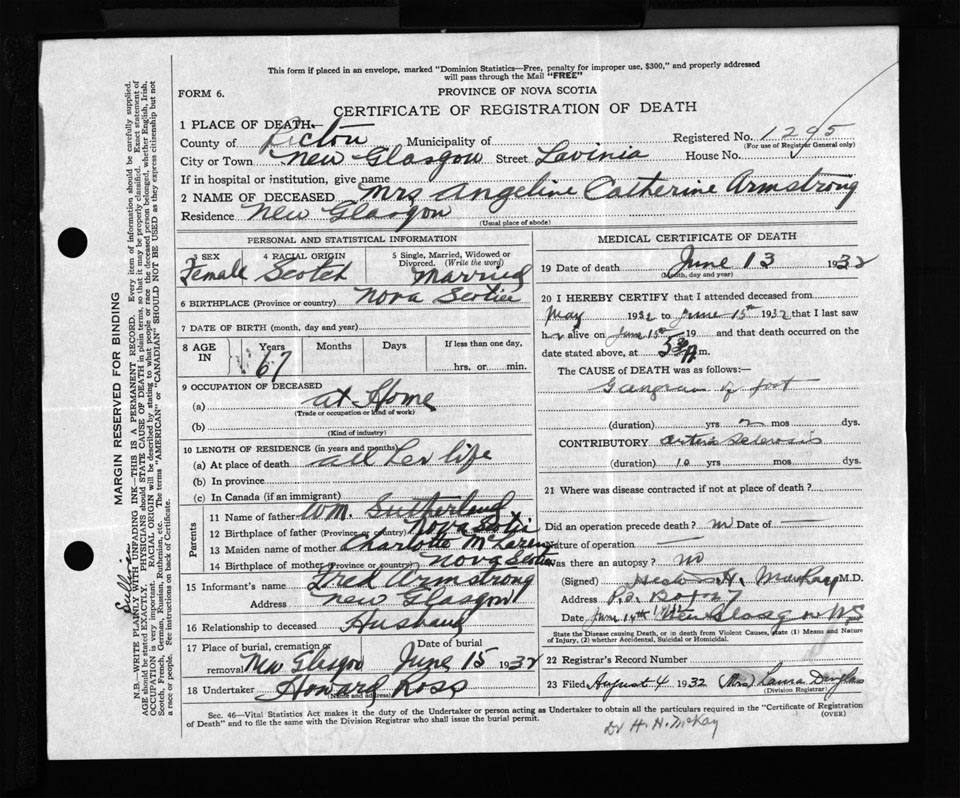 This form if placed in an envelope, marked "Dominion Statistics—Free, penalty for improper use, $300," and properly addressed
will pass through the Mail "FREE"
FORM 6.
PROVINCE OF NOVA SCOTIA
CERTIFICATE OF REGISTRATION OF DEATH
1 PLACE OF DEATH—
County of Pictou Municipality of Registered No. 1295
(For use of Registrar General only)
City or Town New Glasgow Street Lavinia House No.
If in hospital or institution, give name
2 NAME OF DECEASED Mrs Angeline Catherine Armstrong
Residence New Glasgow
(Usual place of abode)
PERSONAL AND STATISTICAL INFORMATION
3 SEX Female
4 RACIAL ORIGIN Scotch
5 Single, Married, Widowed or
Divorced. (Write the word)
Married
6 BIRTHPLACE (Province or country) Nova Scotia
7 DATE OF BIRTH (month, day and year)
8 AGE IN Years 67 Months Days If less than one day,
hrs. or min.
9 OCCUPATION OF DECEASED
(a) at Home
(Trade or occupation or kind of work)
(b)
(Kind of industry)
10 LENGTH OF RESIDENCE (in years and months)
(a) At place of death all her life
(b) In province
(c) In Canada (if an immigrant)
Parents
11 Name of father Wm. Sutherland
12 Birthplace of father (Province or country) Nova Scotia
13 Maiden name of mother Charlotte McLaren
14 Birthplace of mother (Province or country) Nova Scotia
15 Informant's name Fred Armstrong
Address New Glasgow
16 Relationship to deceased Husband
17 Place of burial, cremation or removal New Glasgow
Date of burial June 15 1932
18 Undertaker Howard Ross
(Name and address)
MEDICAL CERTIFICATE OF DEATH
19 Date of death June 13 1932
(Month, day and year)
20 I HEREBY CERTIFY that I attended deceased from
May 1932 to June 15th 1932 that I last saw
her alive on June 15th 19 and that death occurred on
date stated above, at 5 30 A m.
The CAUSE of DEATH was as follows:—
Gangrene of foot
(duration) yrs 2 mos dys.
CONTRIBUTORY arterio sclerosis
(duration) 10 yrs mos dys.
21 Where was disease contracted if not at place of death?
Did an operation precede death? no Date of —
Nature of operation —
Was there an autopsy? no
(Signed) H. MacKay M.D.
Address P.O. Box 27
Date June 14th 1932 New Glasgow NS
State the Disease causing Death, or in death from Violent Causes, state (1) Means and Nature
of Injury, (2) whether Accidental, Suicidal or Homicidal.
22 Registrar's Record Number
23 Filed August 4 1932 (Mrs) Laura Douglas
(Division Registrar)
Sec. 46—Vital Statistics Act makes it the duty of the Undertaker or person acting as Undertaker to obtain all the particulars required in the "Certificate of Registration
of Death" and to file the same with the Division Registrar who shall issue the burial permit.
(OVER)
Dr H. H. McKay
MARGIN RESERVED FOR BINDING
N.B.—WRITE PLAINLY WITH UNFADING INK—THIS IS A PERMANENT RECORD. Every item of information should be carefully supplied.
AGE should be stated EXACTLY. PHYSICIANS should STATE CAUSE OF DEATH in plain terms, so that it may be properly classified. Exact statement of
OCCUPATION is very important. RACIAL ORIGIN will be described by stating to what people or race the deceased person belonged, whether English, Irish,
Scotch, French, German, Russian, Ruthenian, etc. The terms "AMERICAN" or "CANADIAN" SHOULD NOT BE USED as they express citizenship but not
a race or people. See instructions on back of Certificate.
Sullivan